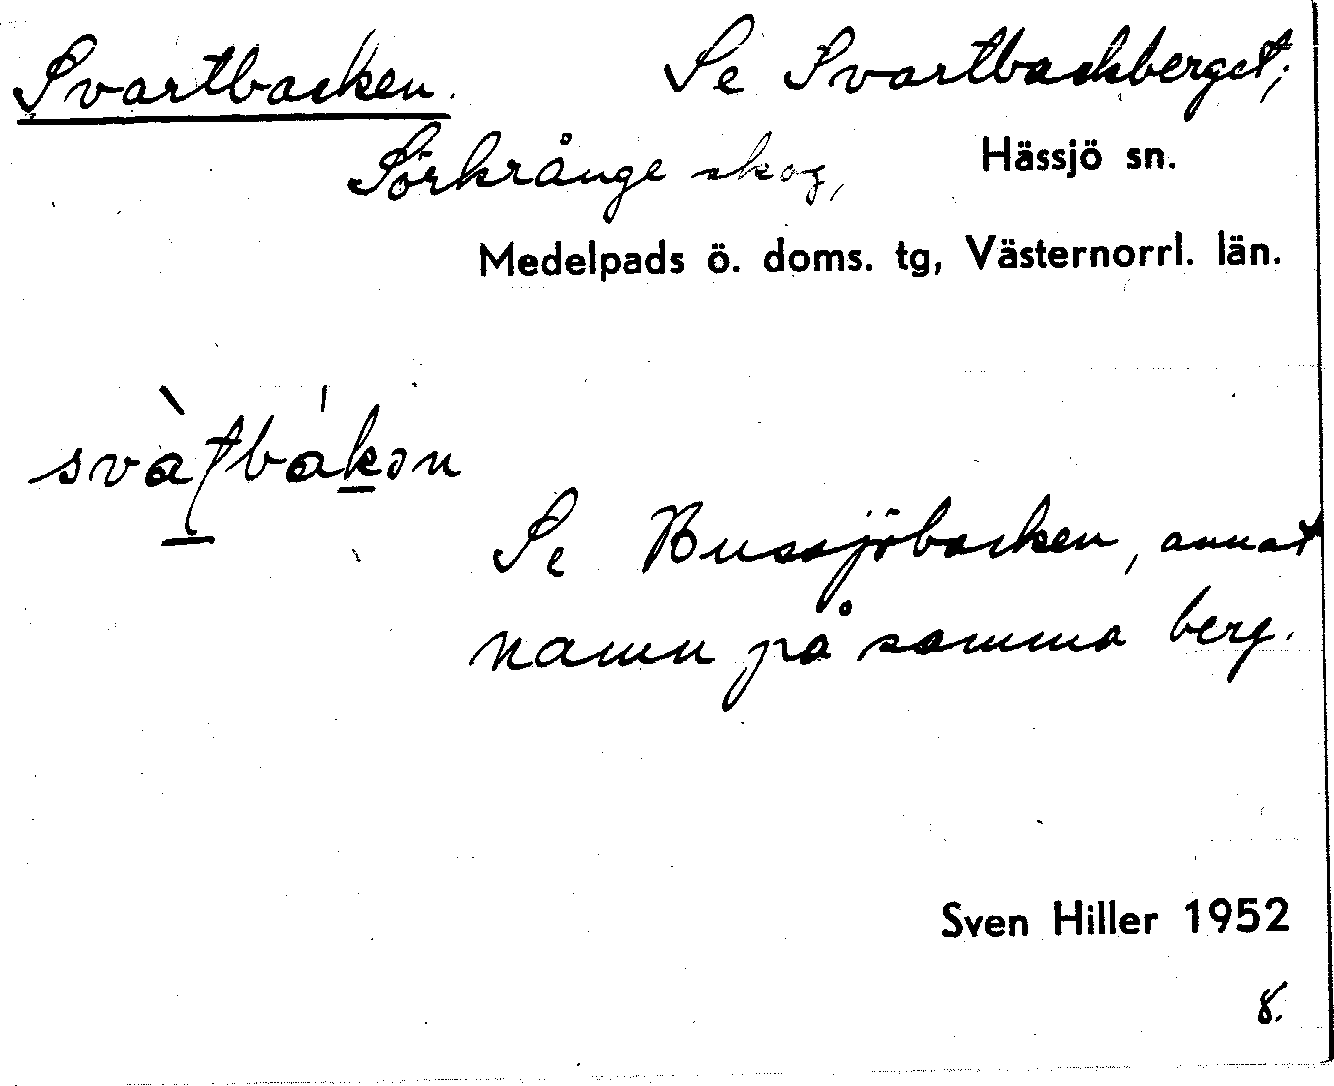 Svartbacken. Se Svartbackberget;
Sörkrånge skog, Hässjö sn.
Medelpads ö. doms. tg, Västernorrl. län.
Se Bussjöbacken, annat
namn på samma berg.
Sven Hiller 1952
8.